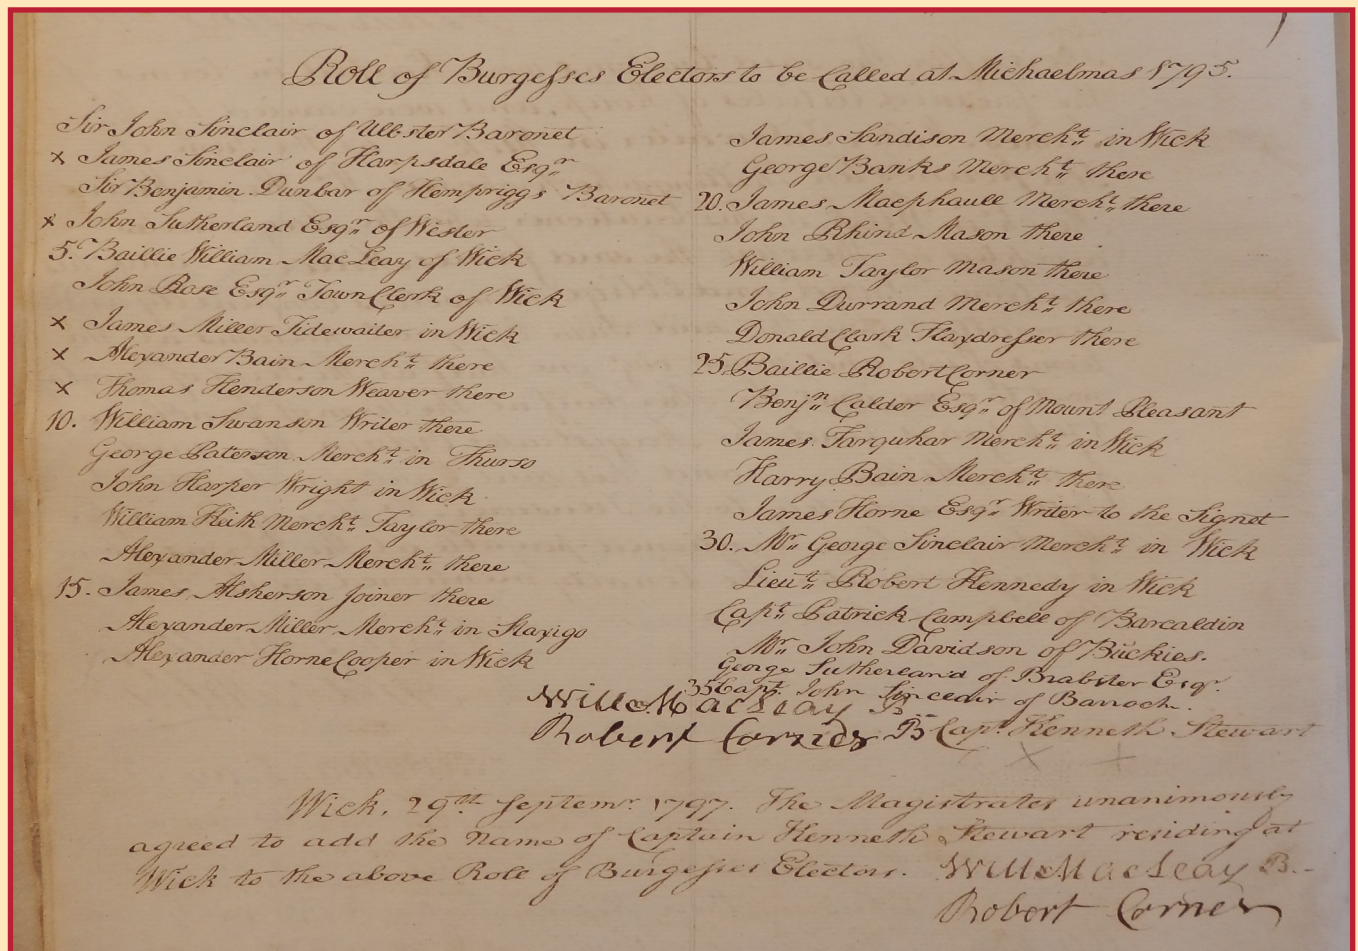 Roll of Burgesses Electors to be Called at Michaelmas 1795.
Sir John Sinclair of Ulbster Baronet
x James Sinclair of Harpsdale Esqr.
Sir Benjamin Dunbar of Hempriggs Baronet
x John Sutherland Esqr. of Wester
5. Baillie William MacLeay of Wick
John Rose Esqr. Town Clerk of Wick
x James Miller Tidewaiter in Wick
x Alexander Bain Mercht. there
x Thomas Henderson Weaver there
10. William Swanson Writer there
George Paterson Mercht. in Thurso
John Harper Wright in Wick
William Keith Mercht. Taylor there
Alexander Miller Mercht. there
15. James Alsherson Joiner there
Alexander Miller Mercht. in Staxigo
Alexander Horne Cooper in Wick
James Sandison Mercht. in Wick
George Banks Mercht. there
20. James Macphaull Mercht. there
John Rhind Mason there
William Taylor Mason there
John Durrand Mercht. there
Donald Clark Flaxdresser there
25. Baillie Robert Corner
Benjn. Calder Esqr. of Mount Pleasant
James Farquhar Mercht. in Wick
Harry Bain Mercht. there
James Horne Esqr. Writer to the Signet
30. Mr. George Sinclair Mercht. in Wick
Lieut. Robert Kennedy in Wick
Capt. Patrick Campbell of Barcaldin
Mr. John Davidson of Buckies.
George Sutherland of Brabster Esqr.
35 Capt. John Sinclair of Barrock.
Will MacLeay B
Robert Corner B Capt. Kenneth Stewart
x +
Wick. 29th Septemr. 1797. The Magistrates unanimously
agreed to add the Name of Captain Kenneth Stewart residing at
Wick to the above Roll of Burgesses Electors. Will MacLeay B.
Robert Corner